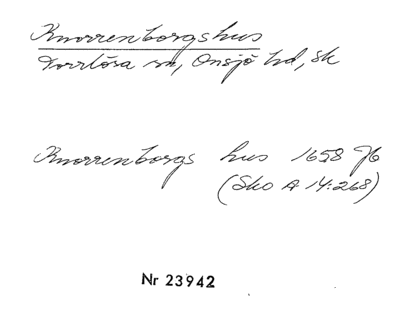 Knorrenborgshus
Torrlösa sn, Onsjö hd, Sk
Knorrenborgs hus 1658 Jb
(Sko A 14:268)
Nr 23942